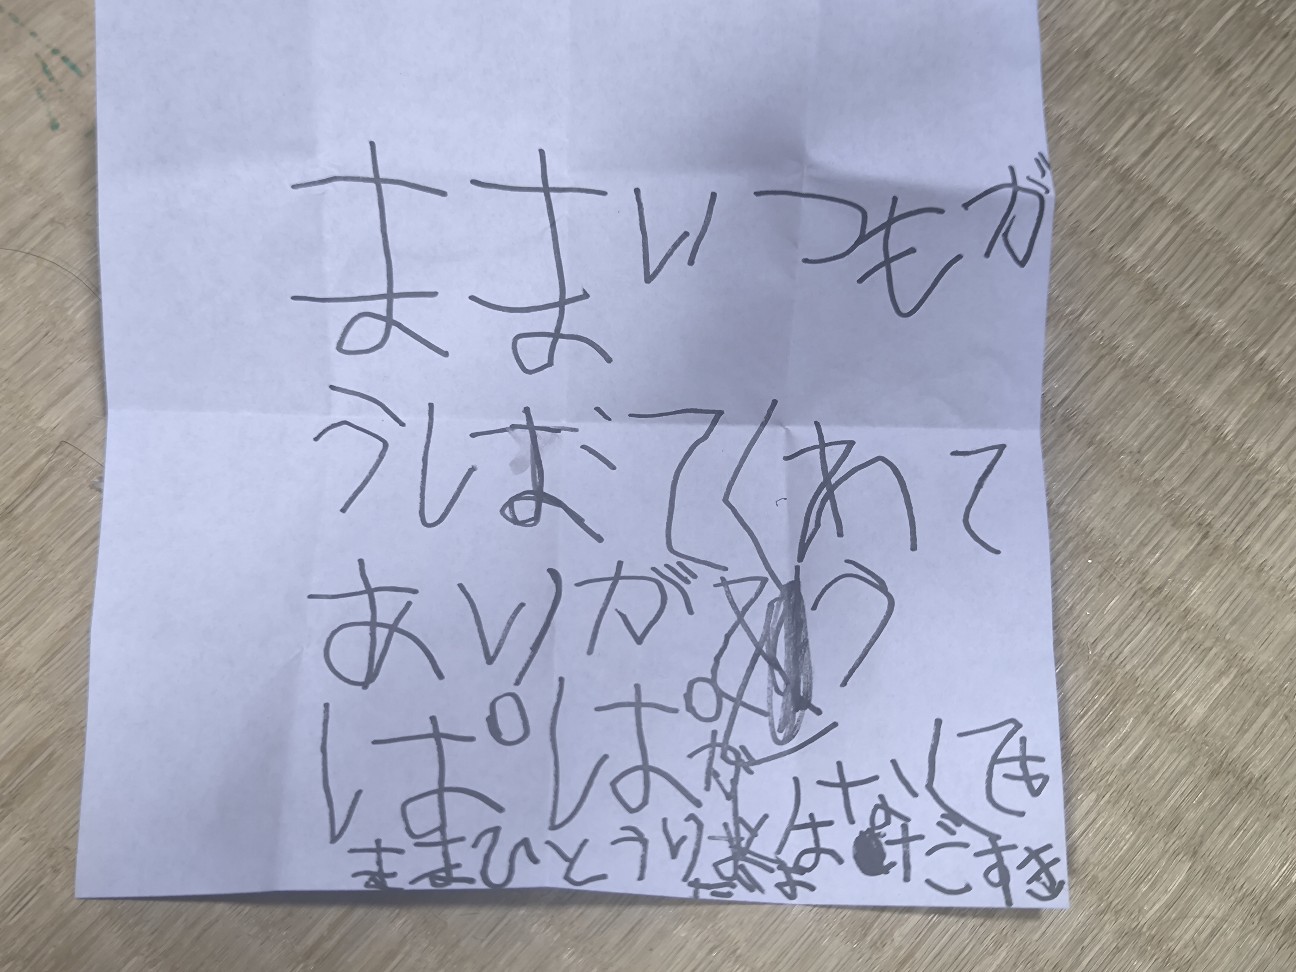 ままいつもが
うしばてくれて
ありがとう
ぱぱがはなしても
ままひとうりだよはなだごすき